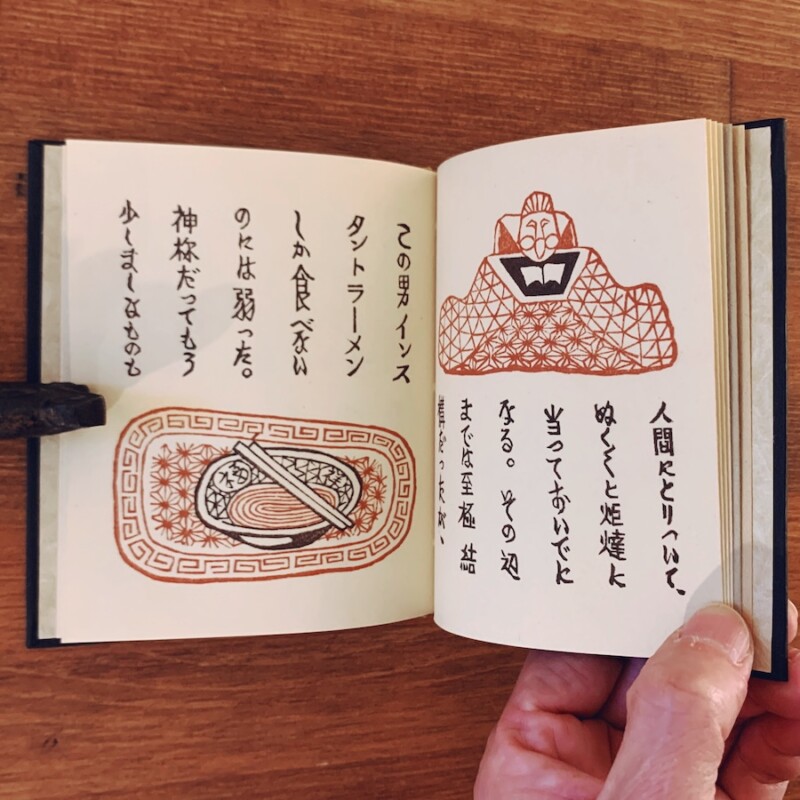 人間にとりついて、
ぬくぬくと炬燵に
当っておいでに
なる。その辺
までは至極 結
構だったが、
この男インス
タントラーメン
しか食べない
のには弱った。
神様だってもう
少しましなものも
福
祥